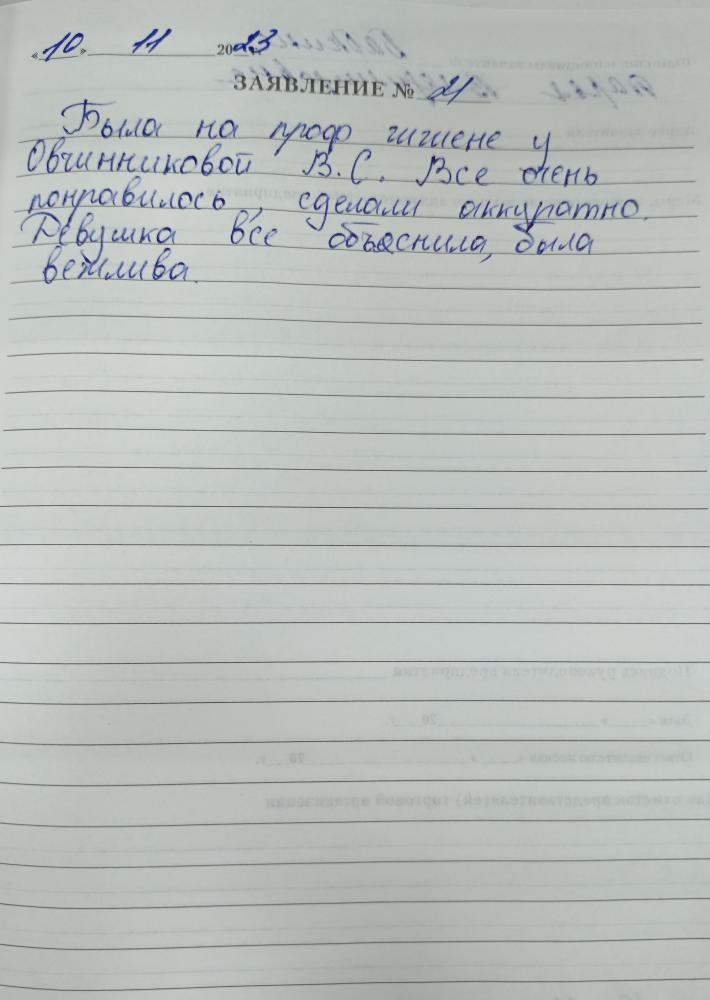 «10» 11 2023
ЗАЯВЛЕНИЕ № 21
Была на проф гигиене у
Овчинниковой В.С. Все очень
понравилось, сделали аккуратно.
Девушка все объяснила, была
вежлива.